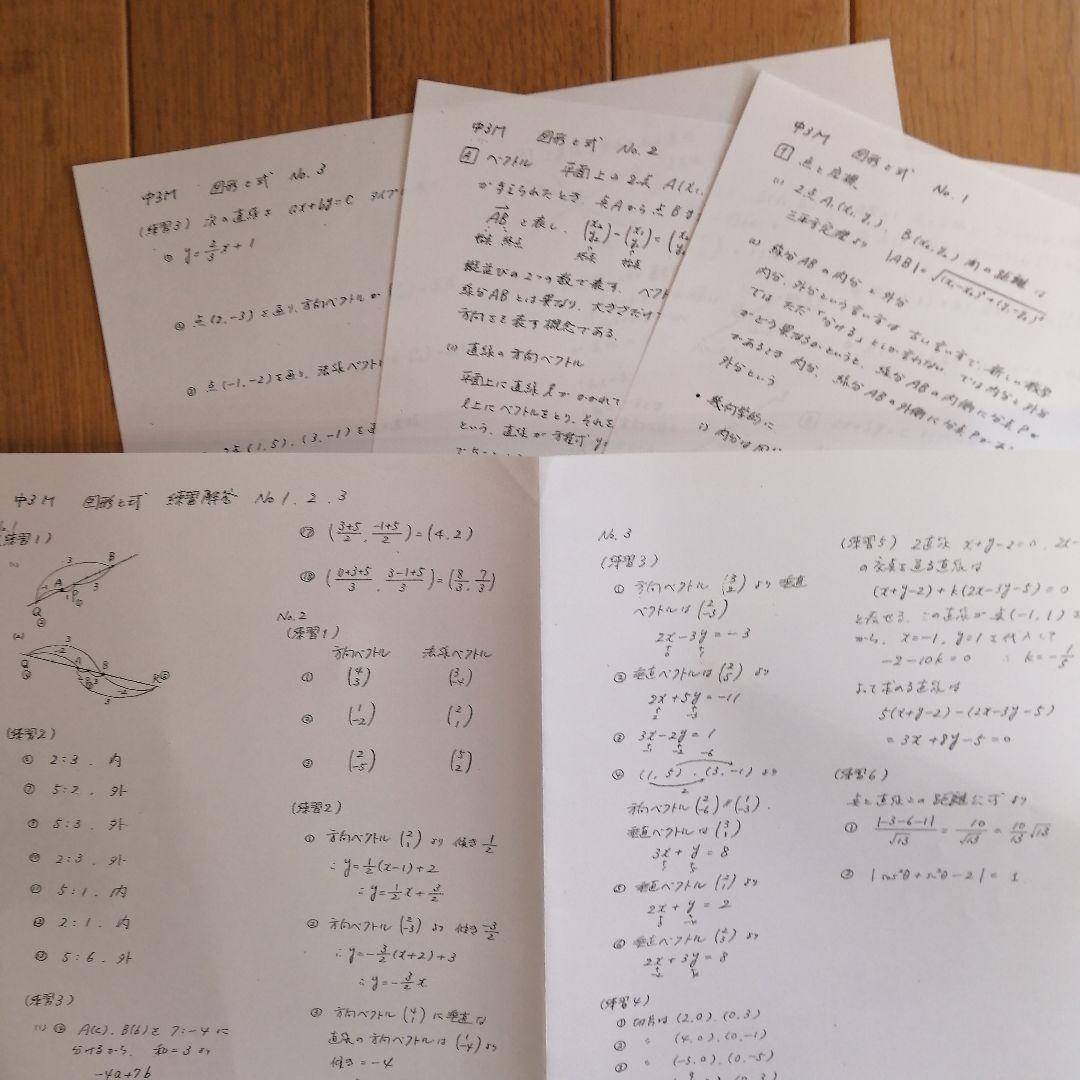 中3M 図形と式 No. 3
(練習3) 次の直線を ax+by=c
① y=2/3x+1
② 点(2,-3)を通り、方向ベクトルが
③ 点(-1,-2)を通り、法線ベクト
2点(1,5)、(3,-1)を通
中3M 図形と式 No. 2
ベクトル 平面上の2点 A(x₁,
が与えられたとき 点Aから点Bま
AB と表し、(x₂ y₂)-(x₁ y₁)=(x₂ y₂
始点 終点 終点 始点
縦並びの2つの数で表す。ベクト
線分ABとは異なり、大きさだけ
方向をも表す概念である。
(1) 直線の方向ベクトル
平面上に直線lがかかれて
l上にベクトルをとり、それを
という。直線が方程式 y
中3M 図形と式 No. 1
点と座標
(1) 2点A(x₁, y₁)、B(x₂, y₂)間の距離は
三平方定理より |AB|=√(x₂-x₁)²+(y₂-y₁)²
(2) 線分ABの内分と外分
内分、外分という言い方は古い言い方で、新しい数学
では ただ「分ける」としか言わない では内分と外分
がどう異なるかというと、線分ABの内側に分点Pが
があるとき 内分、線分ABの外側に分点Pがあ
外分という
・幾何学的に
i) 内分は
中3M 図形と式 練習解答 No 1. 2. 3
練習1)
3 B
A
1 P
Q
(2) 3
Q A B
R
3
(練習2)
2:3. 内
⑦ 5:2. 外
5:3. 外
2:3. 外
5:1. 内
2:1. 内
5:6. 外
(練習3)
(1) A(a), B(b)を7:-4に
分けるから、和=3より
-4a+7b
⑰ (3+5/2, -1+5/2)=(4, 2)
⑱ (0+3+5/3, 3-1+5/3)=(8/3, 7/3)
No. 2
(練習1)
方向ベクトル 法線ベクトル
① (4 3) (3 -4)
② (1 -2) (2 1)
③ (2 -5) (5 2)
(練習2)
① 方向ベクトル(2 1)より 傾き1/2
∴ y=1/2(x-1)+2
∴ y=1/2x+3/2
② 方向ベクトル(2 -3)より 傾き-3/2
∴ y=-3/2(x+2)+3
∴ y=-3/2x
③ 方向ベクトル(4 1)に垂直な
直線の方向ベクトルは(1 -4)より
傾き=-4
No. 3
(練習3)
① 方向ベクトル(3 2)より 垂直
ベクトルは(2 -3)
2x-3y=-3
② 垂直ベクトルは(2 5)より
2x+5y=-11
③ 3x-2y=1
-6
④ (1, 5), (3, -1)より
2
方向ベクトル(2 -6)∥(1 -3).
垂直ベクトルは(3 1)
3x+y=8
⑤ 垂直ベクトル(2 1)より
2x+y=2
⑥ 垂直ベクトル(2 3)より
2x+3y=8
(練習4)
① 切片は (2,0). (0,3)
② 〃 (4,0). (0,-1)
③ 〃 (-3,0). (0,-5)
(練習5) 2直線 x+y-2=0, 2x-
の交点を通る直線は
(x+y-2)+k(2x-3y-5)=0
と表せる. この直線が点(-1,1)を
から、x=-1, y=1を代入して
-2-10k=0 ∴ k=-1/5
よって求める直線は
5(x+y-2)-(2x-3y-5)
=3x+8y-5=0
(練習6)
点と直線との距離公式より
① |-3-6-1|/√13=10/√13=10/13√13
② |cos²θ+sin²θ-2|=1